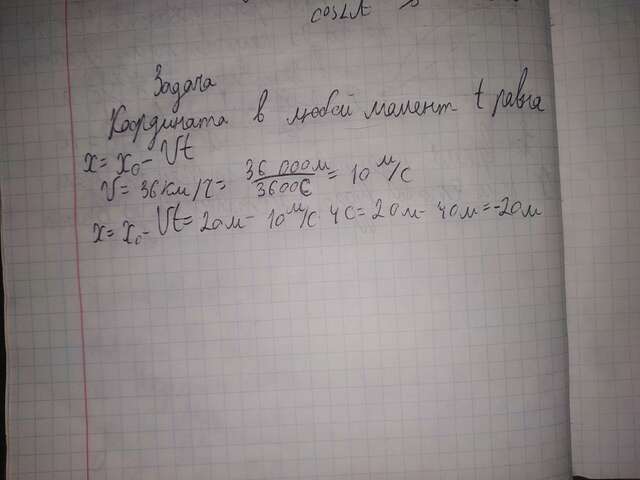 cos∠A
Задача
Координата в любой момент t равна
x = x₀ - Vt
V = 36 км/г = 36 000м / 3600С = 10 м/с
x = x₀ - Vt = 20м - 10 м/с 4С = 20м - 40м = -20м